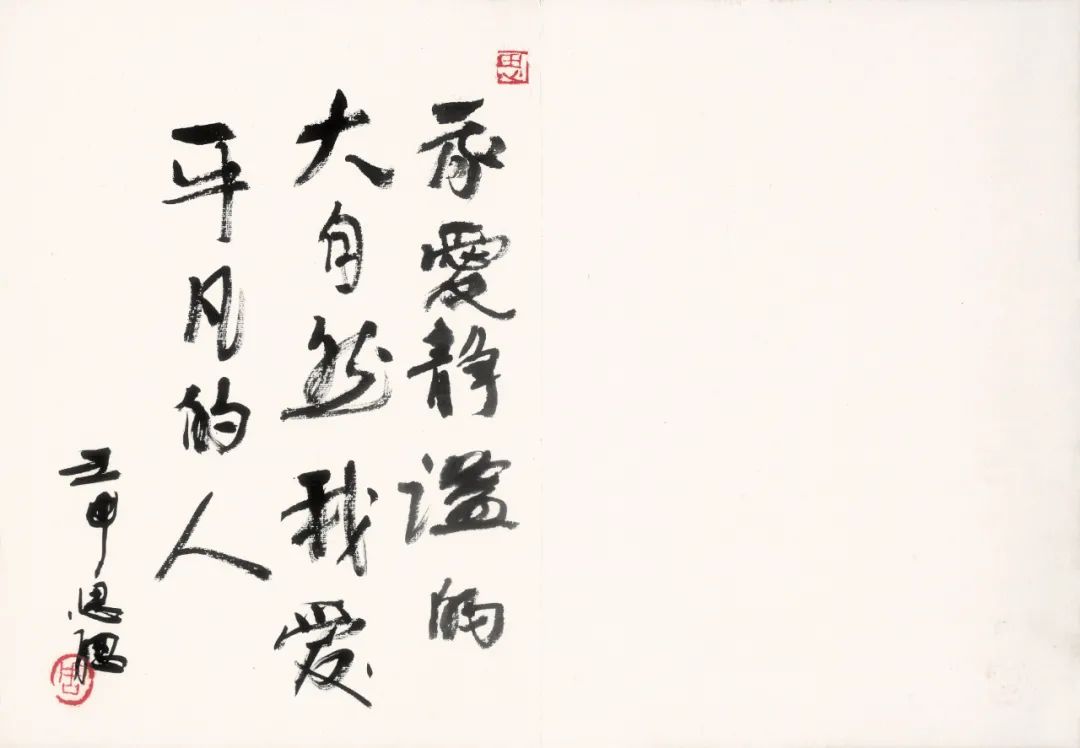 思
我愛静谧的
大自然我爱
平凡的人
壬申思聪
周